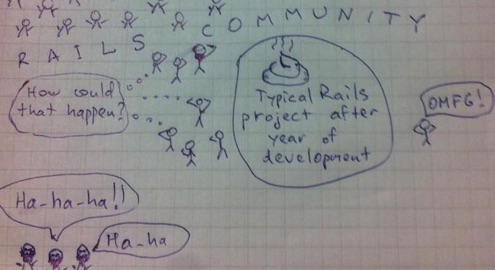 RAILS COMMUNITY
How could
that happen?
Typical Rails
project after
year of
development
OMFG!
Ha-ha-ha!!
Ha-ha